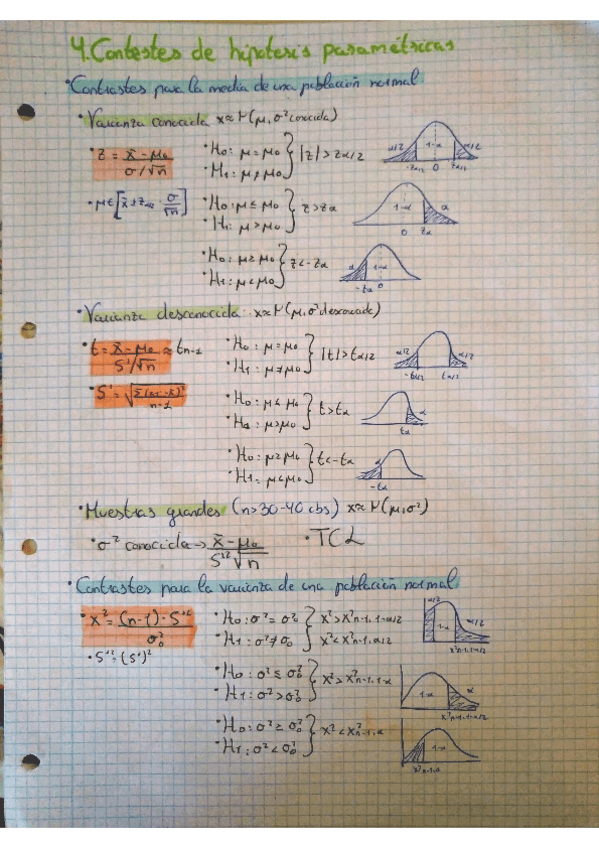 4. Contrastes de hipotesis paramétricas
· Contrastes para la media de una población normal
· Varianza conocida x≈N(μ,σ² conocida)
· z = x̄-μ₀ / σ/√n
· H₀: μ = μ₀
· H₁: μ ≠ μ₀
|z| > zα/2
α/2 1-α α/2
-zα/2 0 zα/2
· μ∈[x̄ ± zα/2 · σ/√n]
· H₀: μ ≤ μ₀
· H₁: μ > μ₀
z > zα
1-α α
0 zα
· H₀: μ ≥ μ₀
· H₁: μ < μ₀
z < -zα
α 1-α
-zα 0
· Varianza desconocida x≈N(μ,σ² desconocida)
· t = x̄-μ₀ / S'/√n ≈ tn-1
· H₀: μ = μ₀
· H₁: μ ≠ μ₀
|t| > tα/2
α/2 α/2
-tα/2 tα/2
· S' = √Σ(xi-x̄)² / n-1
· H₀: μ ≤ μ₀
· H₁: μ > μ₀
t > tα
α
tα
· H₀: μ ≥ μ₀
· H₁: μ < μ₀
t < -tα
α
-tα
· Muestras grandes (n>30-40 obs) x≈N(μ,σ²)
· σ² conocida → x̄-μ₀ / S'²√n
· TCL
· Contrastes para la varianza de una población normal
· X² = (n-1)·S'² / σ₀²
· H₀: σ² = σ₀²
· H₁: σ² ≠ σ₀
X² > X²n-1,1-α/2
X² < X²n-1,α/2
α/2 1-α α/2
X²n-1,1-α/2
· S'² = (S')²
· H₀: σ² ≤ σ₀²
· H₁: σ² > σ₀²
X² > X²n-1,1-α
1-α α
X²n-1,1-α/2
· H₀: σ² ≥ σ₀²
· H₁: σ² < σ₀²
X² < X²n-1,α
1-α
X²n-1,α